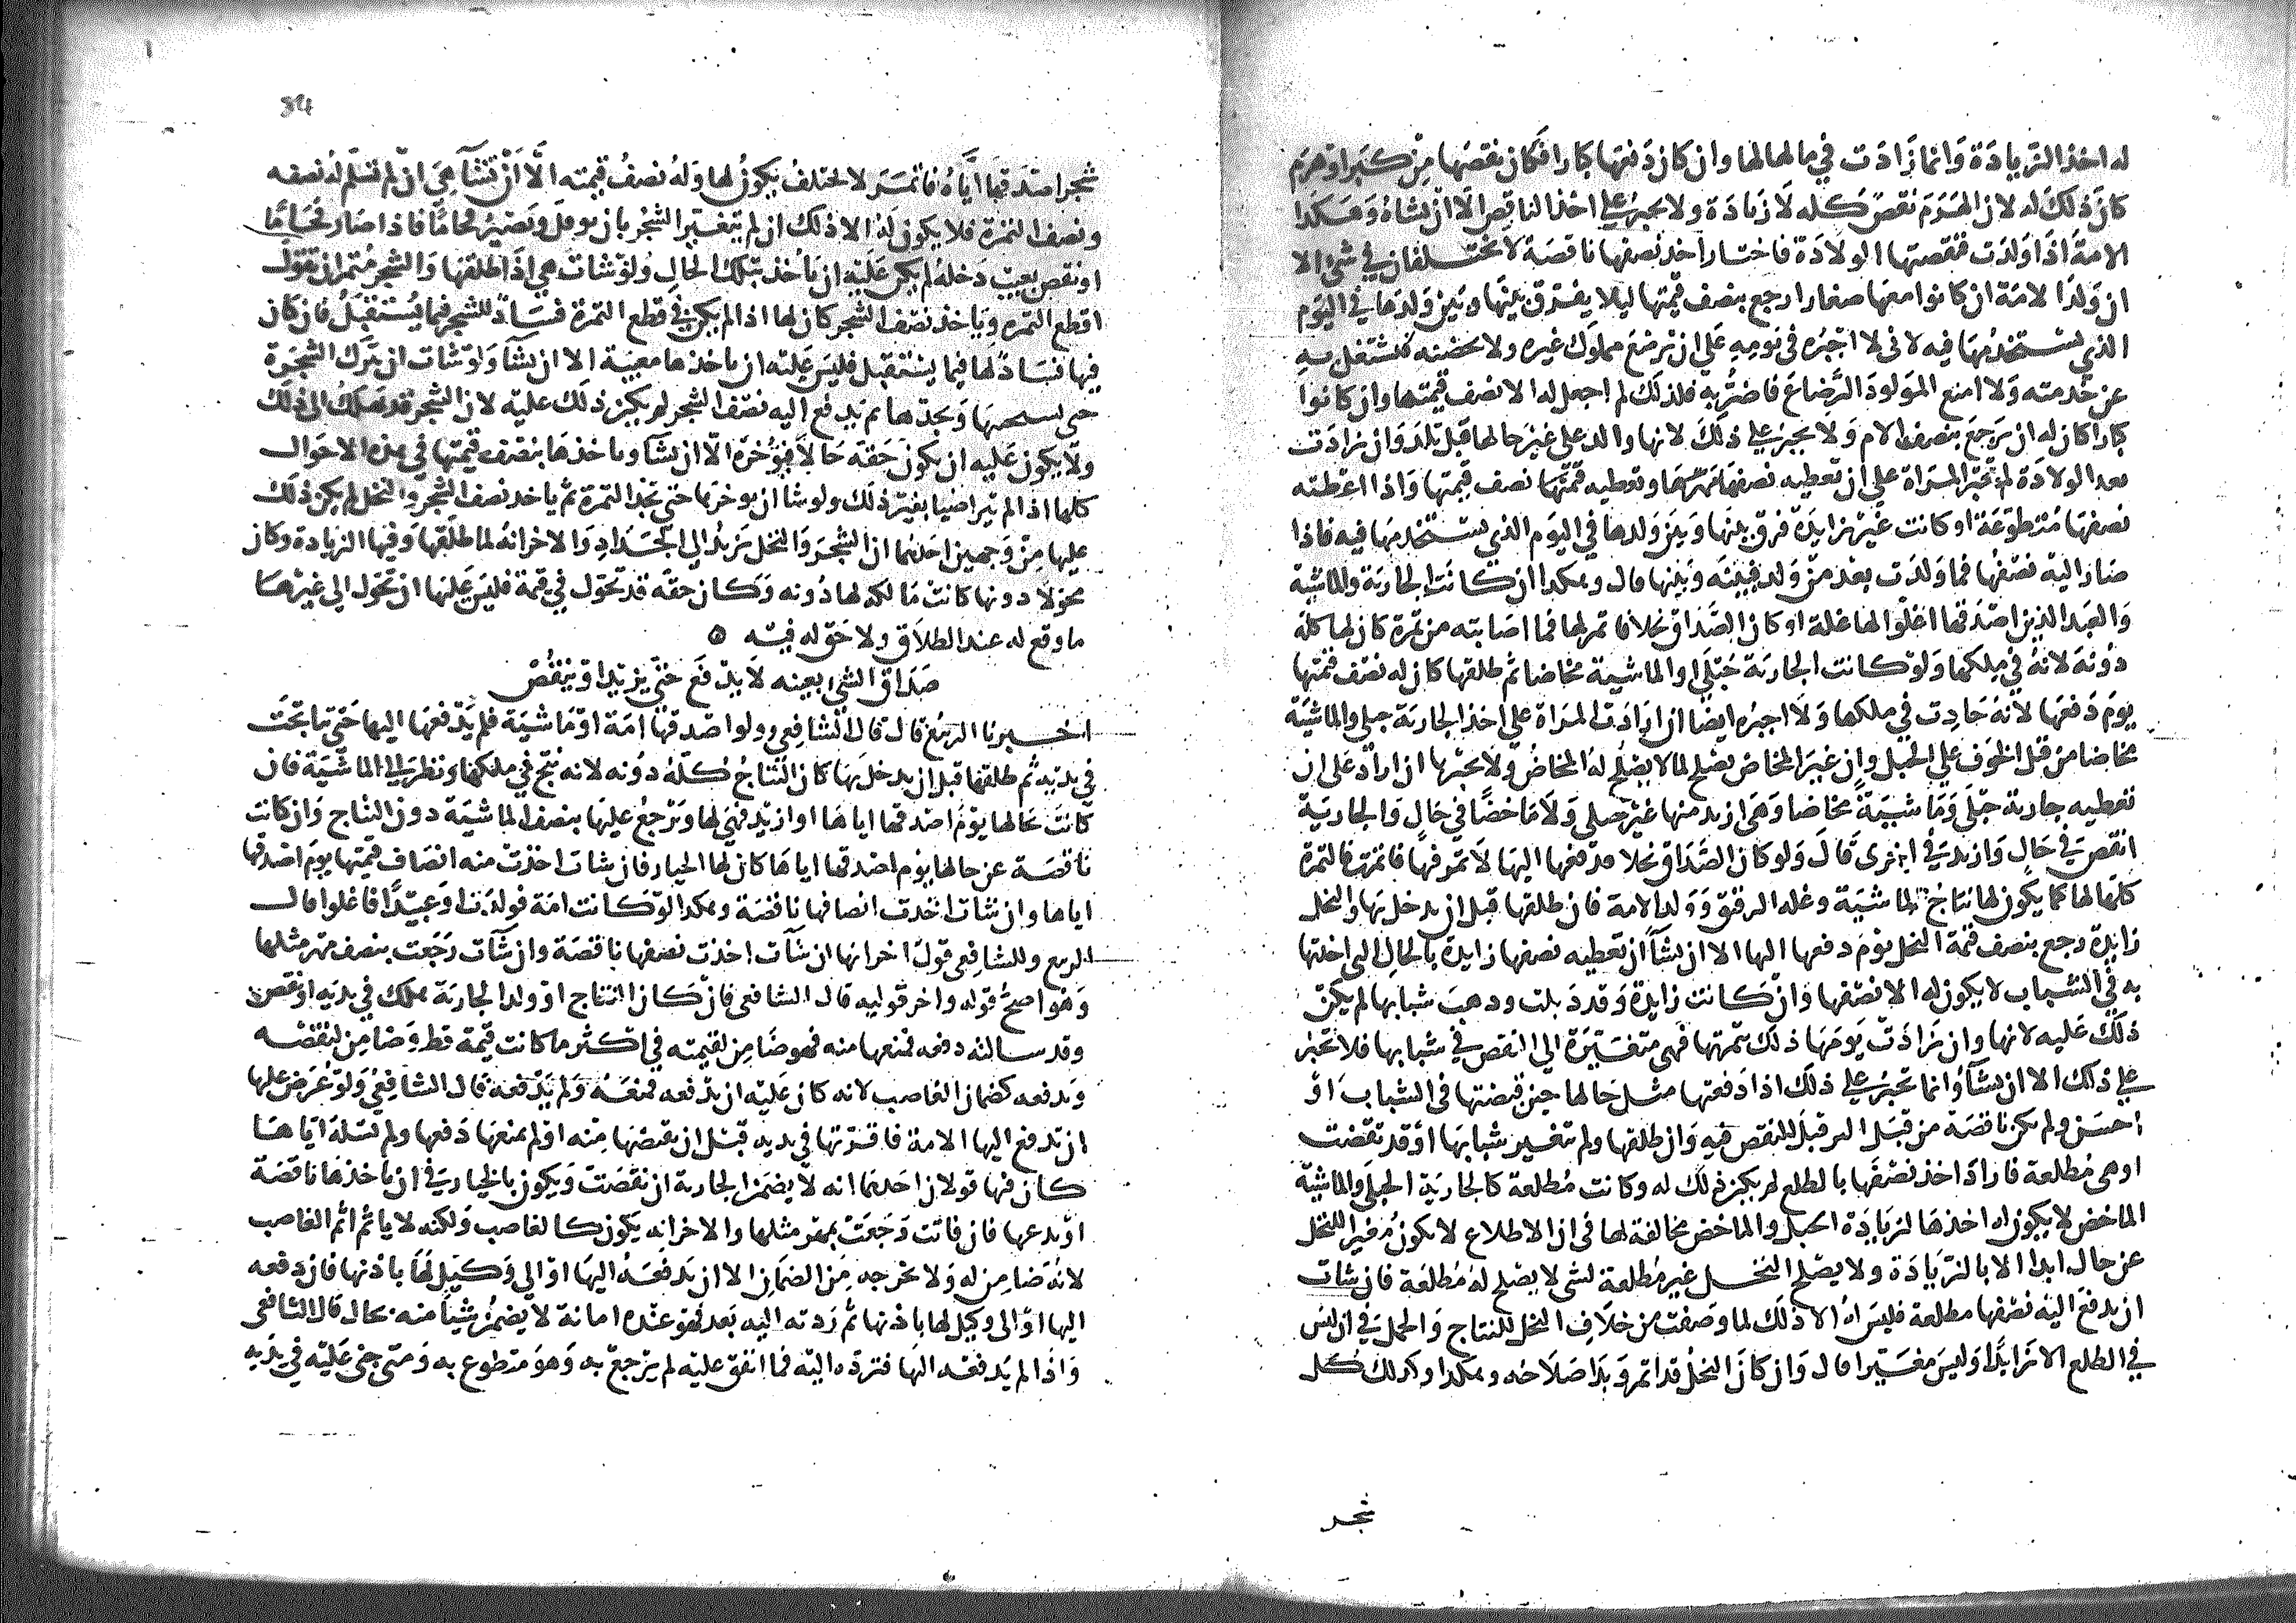 له اخذ الزيادة وانما زادت في مالها لها وان كان دفعها كبارا فكان نقصها من كبر او هرم
كان ذلك له لان الهرم نقص كله لا زيادة ولا يجبر على اخذ الناقص الا ان يشاه وهكذا
الامة اذا ولدت فنقصتها الولادة فاختار اخذ نصفها ناقصة لا يختلفان في شي الا
ان ولد الامة ان كانوا معها صغارا رجع بنصف قيمتها ليلا يفرق بينها وبين ولدها في اليوم
الذي يستخدمها فيه لاني لا اجبره في يومه على ان ترضع مملوك غيره ولا تحضنه فتشتغل به
عن خدمته ولا امنع المولود الرضاع فاضر به فلذلك لم اجعل له الا نصف قيمتها وان كانوا
كبارا كان له ان يرجع بنصف الام ولا يجبر على ذلك لانها والد على غير حالها قبل تلد وان زادت
بعد الولادة لم تجبر المراة على ان تعطيه نصفها وتعطيه نصف قيمتها واذا اعطته
نصفها متطوعة او كانت غير زايدة فرق بينها وبين ولدها في اليوم الذي يستخدمها فيه فاذا
صار اليه نصفها فما ولدت بعد من ولد فبينه وبينها قال وهكذا ان كانت الجارية والماشية
والعبد الذين اصدقها اغلوا لها غلة او كان الصداق نخلا فاثمر لها فما اصابته من ثمرة كان لها كله
دونه لانه في ملكها ولو كانت الجارية حبلى او الماشية مخاضا ثم طلقها كان له نصف قيمتها
يوم دفعها لانه حادث في ملكها ولا اجبره ايضا ان ارادت المراة على اخذ الجارية حبلى والماشية
مخاضا من قبل الخوف على الحبل وان غير المخاض يصلح لما لا يصلح له المخاض ولا نجبرها ان اراد على ان
تعطيه جارية حبلى وماشية مخاضا وهي ازيد منها غير حبلى ولا ماخضا في حال والجارية
انقص في حال وازيد في اخرى قال ولو كان الصداق نخلا فدفعها اليها لا ثمر فيها فاثمرت فالثمرة
كلها لها كما يكون لها نتاج الماشية وغلة الرقيق وولد الامة فان طلقها قبل ان يدخل بها والنخل
زايدة رجع بنصف قيمة النخل يوم دفعها اليها الا ان يشا ان تعطيه نصفها زايدة بالحال التي اخذتها
به في الشباب لا يكون له الا نصفها وان كانت زايدة وقد ذبلت وذهب شبابها لم يكن
ذلك عليه لانها وان زادت يومها ذلك بثمرتها فهي متغيرة الى النقص في شبابها فلا تجبر
على ذلك الا ان يشا وانما تجبر على ذلك اذا دفعتها مثل حالها حين قبضتها في الشباب او
احسن ولم تكن ناقصة من قبل النقص فيه وان طلقها ولم تتغير شبابها او قد نقصت
او هي مطلعة فاراد اخذ نصفها بالطلع لم يكن ذلك له وكانت مطلعة كالجارية الحبلى والماشية
الماخض لا يكون له اخذها لزيادة الحبل والماخض مخالفة لها في ان الاطلاع لا يكون مغيرا للنخل
عن حال ابدا الا بالزيادة ولا يصلح النخل غير مطلعة لشي لا يصلح له مطلعة فان شات
ان يدفع اليه نصفها مطلعة فليس له الا ذلك لما وصفت من خلاف النخل للنتاج والحمل في ان ليس
في الطلع الا زايدا وليس مغيرا قال وان كان النخل قد اثمر وبدا صلاحه وهكذا وكذلك كل
شجر
شجر اصدقها اياه فاثمر لا يختلف يكون لها وله نصف قيمته الا ان تشا هي ان تسلم له نصفه
ونصف الثمرة فلا يكون له الا ذلك ان لم يتغير الشجر بان يرقل ويصير قحاما فاذا صار قحاما
او نقص بعيب دخله لم يكن عليه ان ياخذ بتلك الحال ولو شات هي اذا طلقها والشجر مثمر ان تقول
اقطع الثمرة وياخذ نصف الشجر كان لها اذا لم يكن في قطع الثمرة فساد للشجر فيما يستقبل فان كان
فيها فساد لها فيما يستقبل فليس عليه ان ياخذها معيبة الا ان يشا ولو شات ان تترك الثمرة
حتى تستجنيها وتجدها ثم يدفع اليه نصف الشجر لم يكن ذلك عليه لان الشجر قد تهلك الى ذلك
ولا يكون عليه ان يكون حقه حالا فيوخره الا ان يشا وياخذها بنصف قيمتها في هذه الاحوال
كلها اذا لم يتراضيا بغير ذلك ولو شا ان يوخرها حتى تجد الثمرة ثم ياخذ نصف الشجر والنخل لم يكن ذلك
عليها من وجهين احدهما ان الشجر والنخل يزيد الى الجداد والاخر انه لما طلقها وفيها الزيادة وكان
محولا دونها كانت مالكة لها دونه وكان حقه قد تحول في قيمة فليس عليها ان تحول الى غيرها
ما وقع له عند الطلاق ولا حق له فيه ه
صداق الشي بعينه لا يدفع حتى يزيد او ينقص
اخبرنا الربيع قال قال الشافعي ولو اصدقها امة او ماشية فلم يدفعها اليها حتى تناتجت
في يديه ثم طلقها قبل ان يدخل بها كان النتاج كله دونه لانه نتج في ملكها ونظر الى الماشية فان
كانت بحالها يوم اصدقها اياها او ازيد فهي لها ويرجع عليها بنصف الماشية دون النتاج وان كانت
ناقصة عن حالها يوم اصدقها اياها كان لها الخيار فان شات اخذت منه انصاف قيمتها يوم اصدقها
اياها وان شات اخذت انصافها ناقصة وهكذا لو كانت امة فولدت او عبيدا فاغلوا قال
الربيع وللشافعي قول اخر انها ان شات اخذت نصفها ناقصة وان شات رجعت بنصف مهر مثلها
وهو اصح قوله واخر قوليه قال الشافعي فان كان النتاج او ولد الجارية هلك في يديه او نقص
وقد سالته دفعه فمنعها منه فهو ضامن لقيمته في اكثر ما كانت قيمة قط وضامن لنقصه
ويدفعه كضمان الغاصب لانه كان عليه ان يدفعه فمنعه ولم يدفعه قال الشافعي ولو عرض عليها
ان يدفع اليها الامة فاقرتها في يديه قبل ان يقبضها منه او لم يمنعها دفعها ولم تسله اياها
كان فيها قولان احدهما انه لا يضمن الجارية ان نقصت ويكون بالخيار في ان ياخذها ناقصة
او يدعها فان فاتت رجعت بمهر مثلها والاخر انه يكون كالغاصب ولكنه لا ياثم اثم الغاصب
لانه ضامن له ولا يخرجه من الضمان الا ان يدفعه اليها او الى وكيل لها باذنها فان دفعه
اليها او الى وكيل لها باذنها ثم ردته اليه بعد فهو عنده امانة لا يضمن شيا منه بحال قال الشافعي
واذا لم يدفعه اليها فترده اليه فما انفق عليه لم يرجع به وهو متطوع به ومتى جنى عليه في يديه